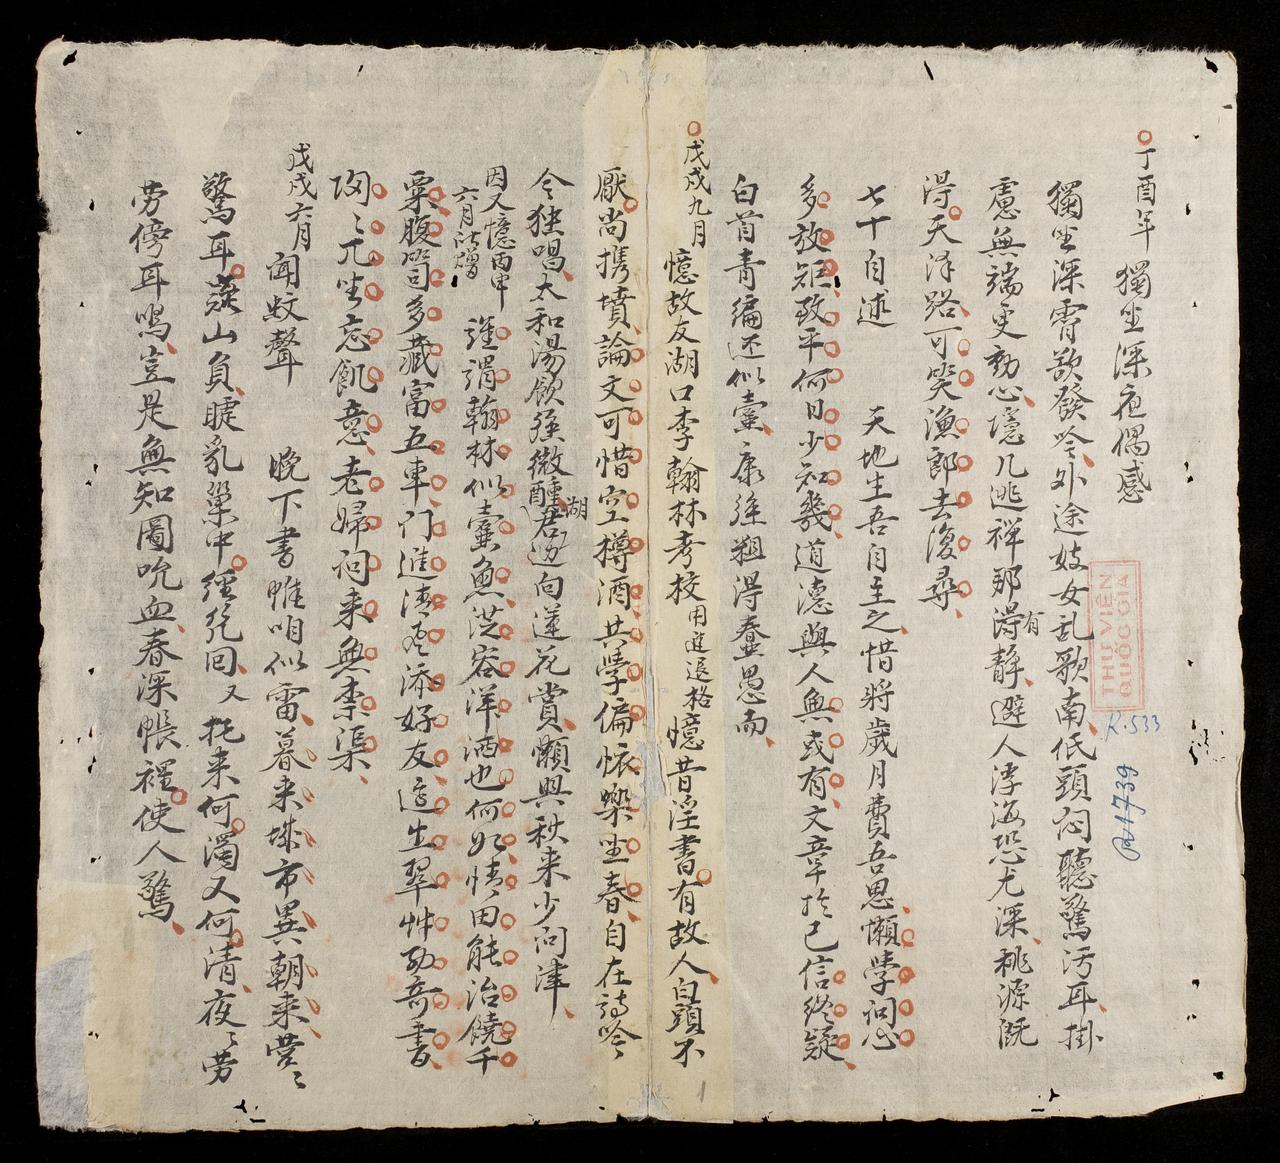 丁酉年 獨坐深夜偶感
獨坐深霄欲發吟外途妓女乱歌南低頭闷聽驚污耳掛
慮無端更動心隱几逃禅那有得静避人浮海恐尤深桃源既
得天洋路可笑漁郎去復尋
七十自述 天地生吾自主之惜将歲月費吾思懶學词心
多放矩致平何日少知幾道德與人無或有文章扵已信終疑
白首青編还似蠹康強粗得蠢愚而
戊戌九月 憶故友湖口李翰林考校用進退格 憶昔淫書有故人白頭不
厭尚携墳論文可惜空樽酒共學偏懷樂坐春自在詩吟
今独唱太和湯飲強微醺君湖边向蓮花賞懶與秋来少问津
因又憶丙申六月所增 誰謂翰林似蠹魚洪容洋洒也何如情田能治饒千
粟腹笥多藏富五車门進清風添好友這生翠艸勁奇書
陶〻兀坐忘飢意老婦祠来無柰渠
戊戌六月 聞蚊聲 晚下書帷咱似雷暮来城市異朝来营〻
驚耳蔆山負睫乳巢中經乾回又托来何濁又何清夜〻劳
劳傍耳鳴豈是無知圖吮血春深帳裡使人驚
THƯ VIỆN
QUỐC GIA
R.533
1739
1